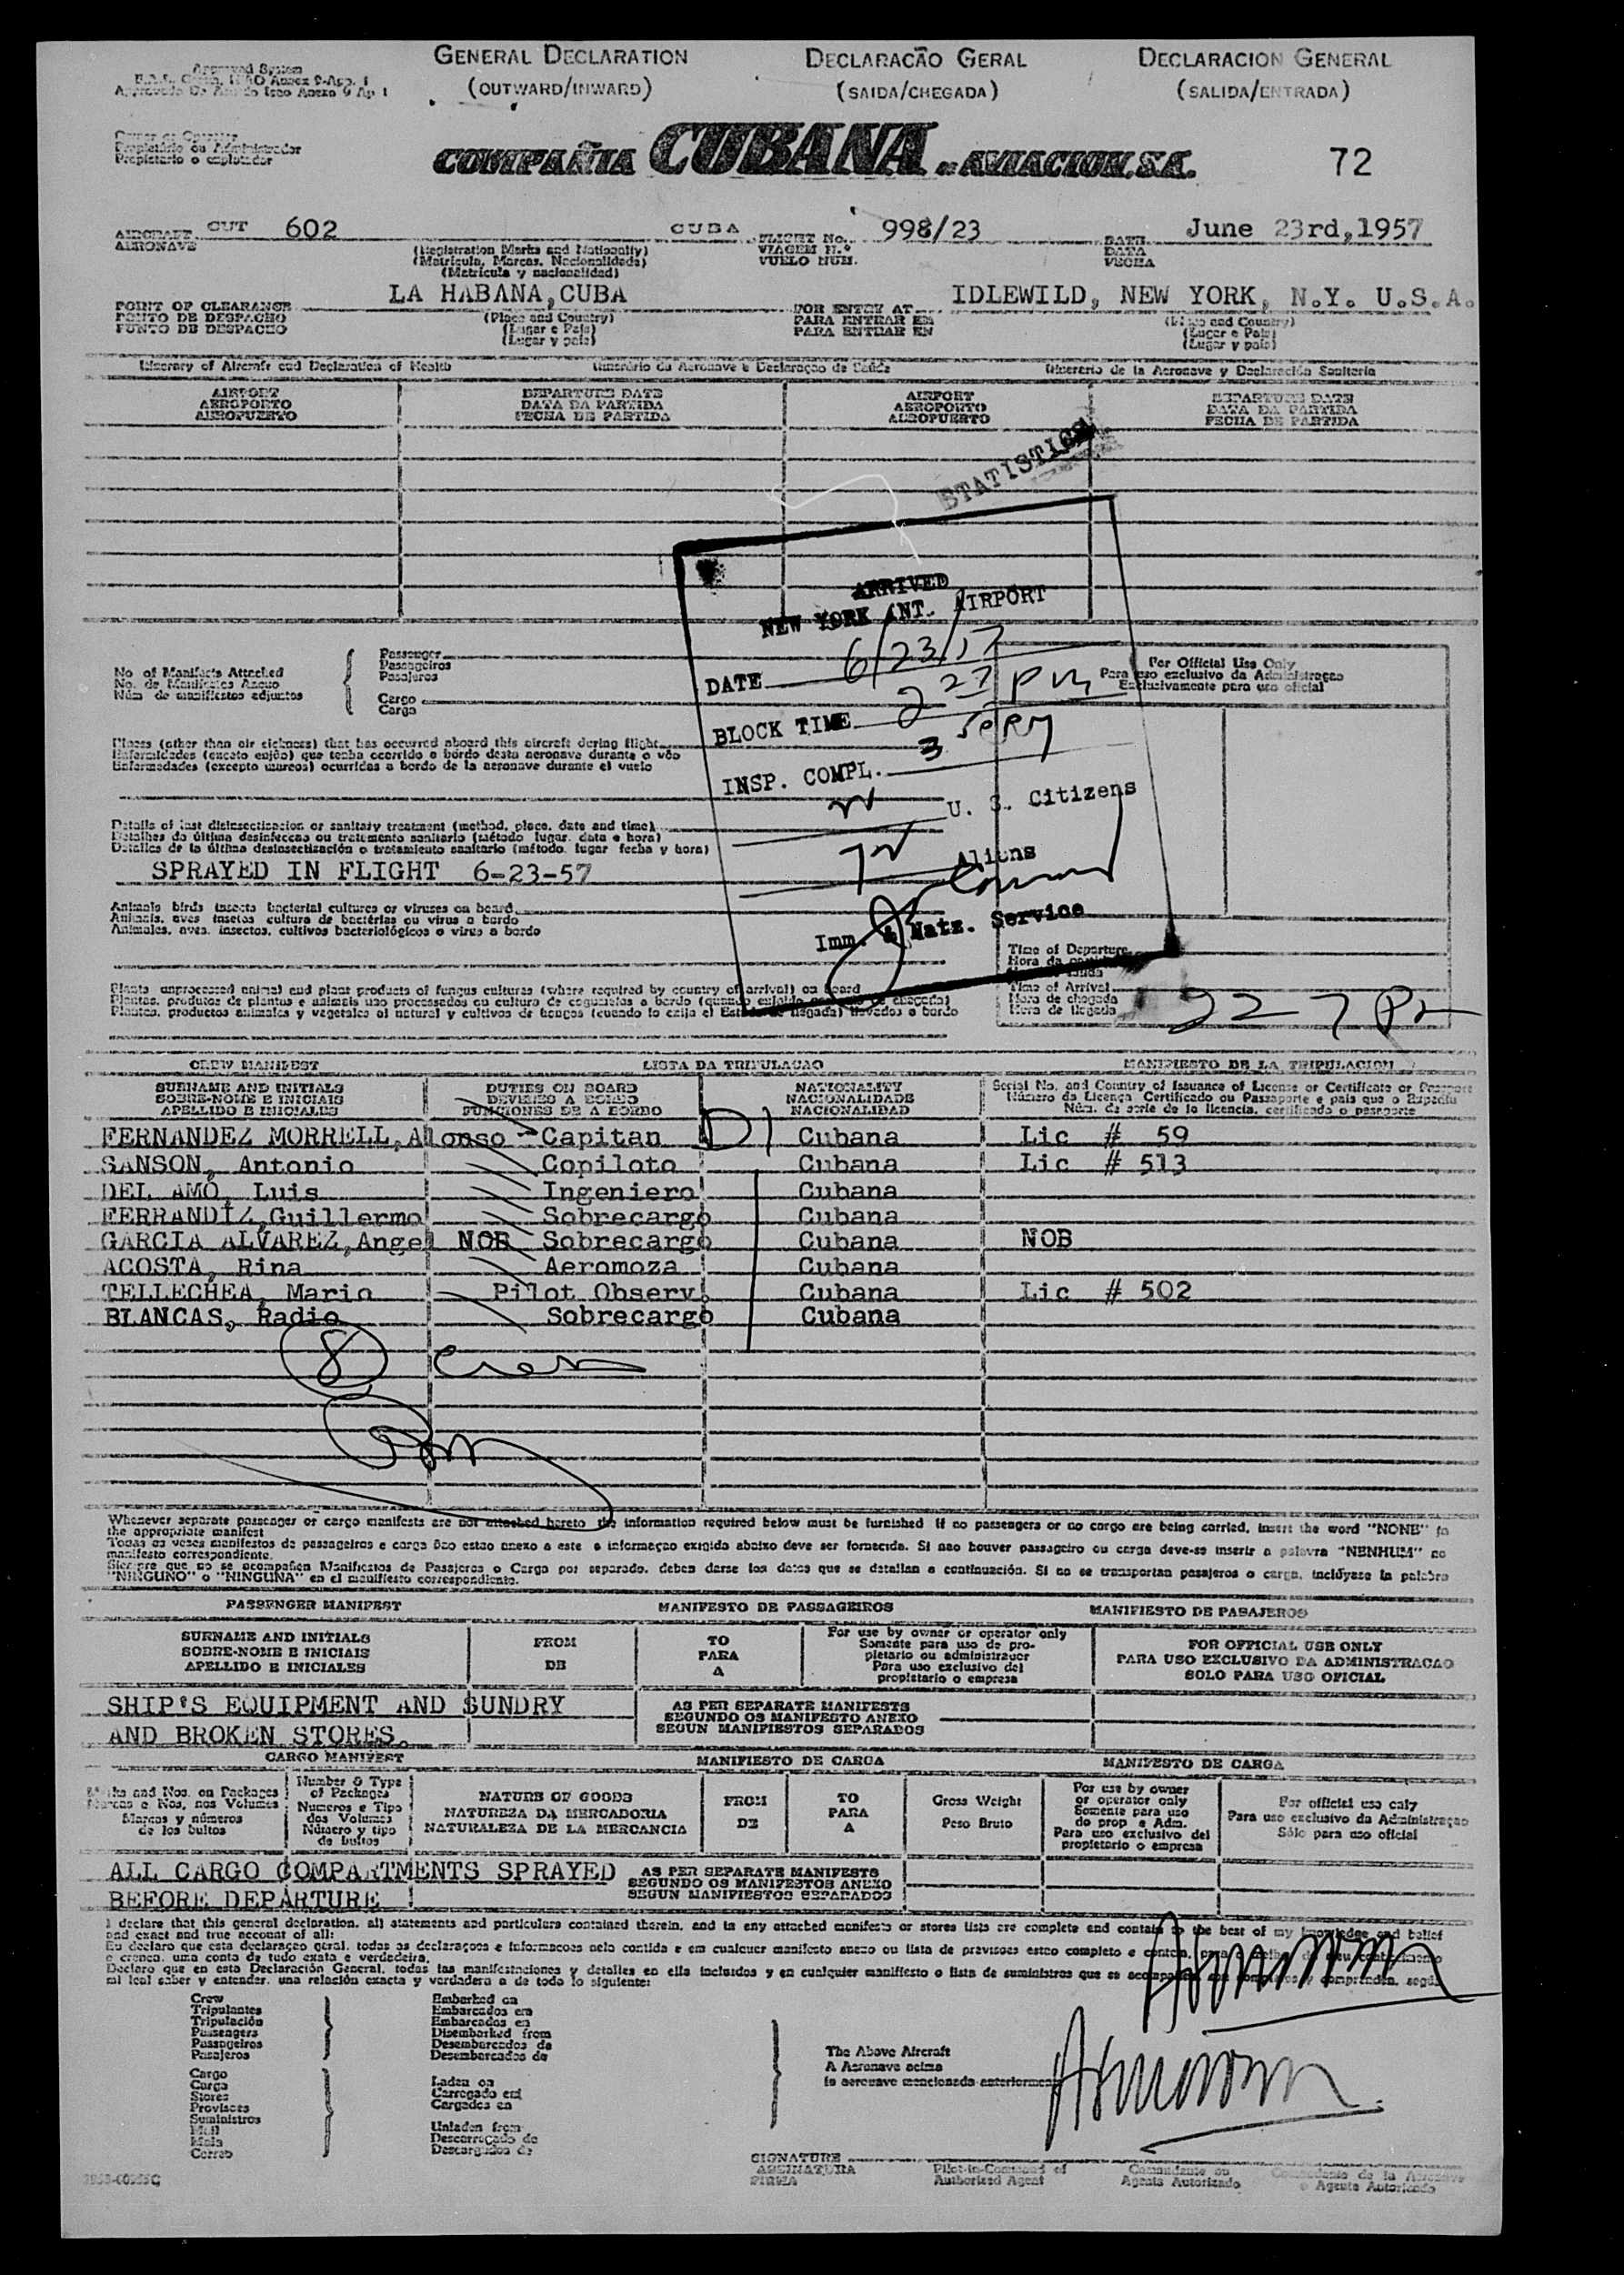 GENERAL DECLARATION
(OUTWARD/INWARD)
DECLARACÃO GERAL
(SAIDA/CHEGADA)
DECLARACION GENERAL
(SALIDA/ENTRADA)
Propietário ou Administrador
Propietario o explotador
COMPAÑIA CUBANA DE AVIACION, S.A.
72
AIRCRAFT CUT 602 CUBA FLIGHT No. 998/23 DATE June 23rd, 1957
AERONAVE
VIAGEM N.º
VUELO NUM.
DATA
FECHA
(Registration Marks and Nationality)
(Matricula, Marcas, Nacionalidade)
(Matricula y nacionalidad)
POINT OF CLEARANCE LA HABANA, CUBA FOR ENTRY AT IDLEWILD, NEW YORK, N.Y. U.S.A.
PONTO DE DESPACHO
PUNTO DE DESPACHO
(Place and Country)
(Lugar e Pais)
(Lugar y pais)
PARA ENTRAR EM
PARA ENTRAR EN
(Place and Country)
(Lugar e Pais)
(Lugar y pais)
Itinerary of Aircraft and Declaration of Health
Itinerário da Aeronave e Declaraçao de Saúde
Itinerario de la Aeronave y Declaración Sanitaria
AIRPORT
AEROPORTO
AEROPUERTO
DEPARTURE DATE
DATA DA PARTIDA
FECHA DE PARTIDA
AIRPORT
AEROPORTO
AEROPUERTO
DEPARTURE DATE
DATA DA PARTIDA
FECHA DE PARTIDA
STATISTICS
ARRIVED
NEW YORK INT. AIRPORT
DATE 6/23/57
BLOCK TIME 2 27 PM
INSP. COMPL. 3
U. S. Citizens
Aliens
Imm. & Natz. Service
No. of Manifests Attached
No. de Manifestos Anexo
Núm de manifiestos adjuntos
Passenger
Passageiros
Pasajeros
Cargo
Carga
For Official Use Only
Para uso exclusivo da Administraçao
Exclusivamente para uso oficial
Illness (other than air sickness) that has occurred aboard this aircraft during flight
Enfermidades (exceto enjôo) que tenha ocorrido a bordo desta aeronave durante o vôo
Enfermedades (excepto mareos) ocurridas a bordo de la aeronave durante el vuelo
Details of last disinsectization or sanitary treatment (method, place, date and time)
Detalhes da última desinfeccao ou tratamento sanitario (método lugar, data e hora)
Detalles de la última desinsectización o tratamiento sanitario (método, lugar fecha y hora)
SPRAYED IN FLIGHT 6-23-57
Animals birds insects bacterial cultures or viruses on board
Animais, aves insetos cultura de bactérias ou virus a bordo
Animales, aves, insectos, cultivos bacteriológicos o virus a bordo
Time of Departure
Time of Arrival
Hora de chegada
Hora de llegada
227 P
Plants unprocessed animal and plant products of fungus cultures (where required by country of arrival) on board
CREW MANIFEST
LISTA DA TRIPULACAO
MANIFIESTO DE LA TRIPULACION
SURNAME AND INITIALS
SOBRE-NOME E INICIAIS
APELLIDO E INICIALES
DUTIES ON BOARD
DEVERES A BORDO
FUNCIONES DE A BORDO
NATIONALITY
NACIONALIDADE
NACIONALIDAD
Serial No. and Country of Issuance of License or Certificate or Passport
Número da Licença Certificado ou Passaporte e pais que o Expediu
Núm. de serie de la licencia, certificado o pasaporte
FERNANDEZ MORRELL, Alonso - Capitan D1 Cubana Lic # 59
SANSON, Antonio Copiloto Cubana Lic # 513
DEL AMO, Luis Ingeniero Cubana
FERRANDIZ, Guillermo Sobrecargo Cubana
GARCIA ALVAREZ, Angel NOB Sobrecargo Cubana NOB
ACOSTA, Rina Aeromoza Cubana
TELLECHEA, Mario Pilot Observ. Cubana Lic # 502
BLANCAS, Radio Sobrecargo Cubana
8 Crew
Whenever separate passenger or cargo manifests are not attached hereto the information required below must be furnished If no passengers or no cargo are being carried, insert the word "NONE" in
the appropriate manifest
Todas as vezes manifestos de passageiros e carga ñao estao anexo a este a informaçao exigida abaixo deve ser fornecida. Si nao houver passageiro ou carga deve-se inserir a palavra "NENHUM" no
manifesto correspondiente.
Siempre que no se acompañen Manifiestos de Pasajeros o Carga por separado, deben darse los datos que se detallan a continuación. Si no se transportan pasajeros o carga, inclúyase la palabra
"NINGUNO" o "NINGUNA" en el manifiesto correspondiente.
PASSENGER MANIFEST
MANIFESTO DE PASSAGEIROS
MANIFIESTO DE PASAJEROS
SURNAME AND INITIALS
SOBRE-NOME E INICIAIS
APELLIDO E INICIALES
FROM
DE
TO
PARA
A
For use by owner or operator only
Somente para uso de pro-
pietario ou administraver
Para uso exclusivo del
propietario o empresa
FOR OFFICIAL USE ONLY
PARA USO EXCLUSIVO DA ADMINISTRACAO
SOLO PARA USO OFICIAL
SHIP'S EQUIPMENT AND SUNDRY
AND BROKEN STORES.
AS PER SEPARATE MANIFESTS
SEGUNDO OS MANIFESTO ANEXO
SEGUN MANIFIESTOS SEPARADOS
CARGO MANIFEST
MANIFIESTO DE CARGA
MANIFESTO DE CARGA
Marks and Nos. on Packages
Marcas e Nos, nos Volumes
Marcas y números
de los bultos
Number & Type
of Packages
Numeros e Tipo
dos Volumes
Número y tipo
de bultos
NATURE OF GOODS
NATUREZA DA MERCADORIA
NATURALEZA DE LA MERCANCIA
FROM
DE
TO
PARA
A
Gross Weight
Peso Bruto
For use by owner
or operator only
Somente para uso
do prop e Adm.
Para uso exclusivo del
propietario o empresa
For official use only
Para uso exclusivo da Administraçao
Sólo para uso oficial
ALL CARGO COMPARTMENTS SPRAYED
BEFORE DEPARTURE
AS PER SEPARATE MANIFESTS
SEGUNDO OS MANIFESTOS ANEXO
SEGUN MANIFIESTOS SEPARADOS
I declare that this general declaration, all statements and particulars contained therein, and in any attached manifests or stores lists are complete and contain to the best of my knowledge and belief
and exact and true account of all:
e crenca, uma conta de tudo exata e verdadeira.
mi leal saber y entender, una relación exacta y verdadera a de todo lo siguiente:
Crew
Tripulantes
Tripulación
Passengers
Passageiros
Pasajeros
Embarked on
Embarcados em
Embarcados en
Disembarked from
Desembarcados da
Desembarcados de
Cargo
Carga
Stores
Provisoes
Suministros
Mail
Mala
Correo
Laden on
Carregado em
Cargados en
Unladen from
Descarregado de
Descargados de
The Above Aircraft
A Aeronave acima
la aeronave mencionada anteriormente
SIGNATURE
ASSINATURA
FIRMA
Pilot-in-Command of
Authorized Agent
Comandante ou
Agente Autorizado
Comandante de la Aeronave
o Agente Autorizado